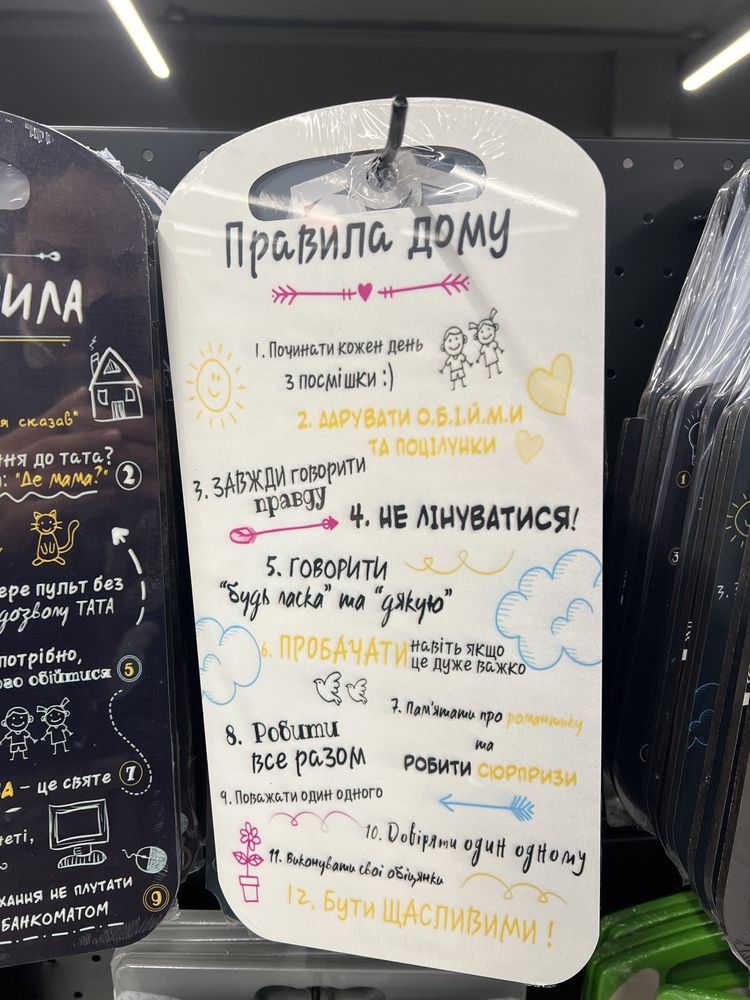 Правила дому
1. Починати кожен день
з посмішки :)
2. ДАРУВАТИ О.Б.І.Й.М.И
ТА ПОЦІЛУНКИ
3. ЗАВЖДИ ГОВОРИТИ
правду
4. НЕ ЛІНУВАТИСЯ!
5. ГОВОРИТИ
"будь ласка" та "дякую"
6. ПРОБАЧАТИ навіть якщо
це дуже важко
7. Пам'ятати про романтику
та
РОБИТИ СЮРПРИЗИ
8. Робити
все разом
9. Поважати один одного
10. Довіряти один одному
11. Виконувати свої обіцянки
12. Бути ЩАСЛИВИМИ!
ИЛА
я сказав"
ння до тата?
: "Де мама?" 2
ере пульт без
дозволу ТАТА
потрібно,
ого обійтися 5
А – це святе 7
неті,
хання не плутати
БАНКОМАТОМ 9
1
3
3.